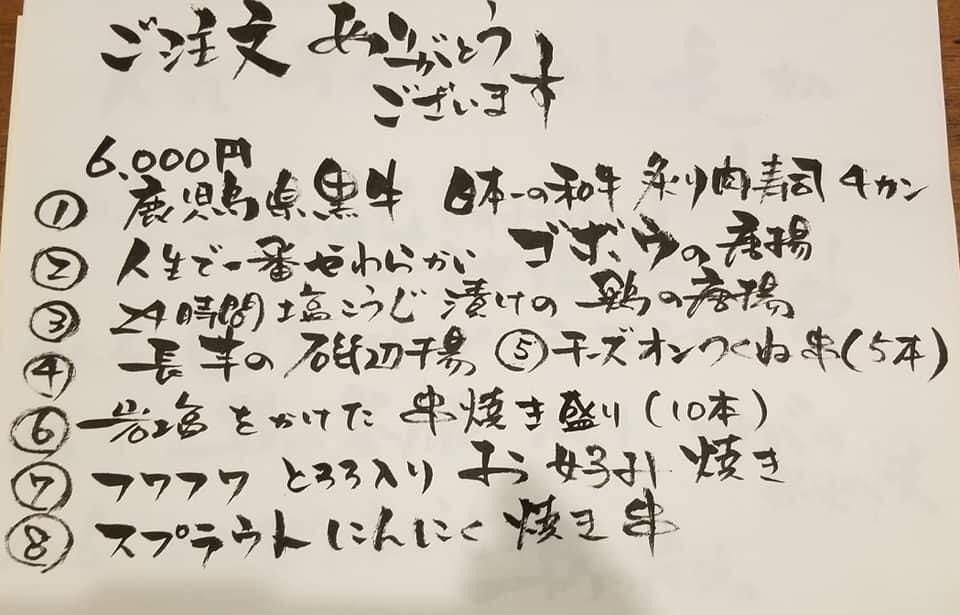 ご注文 ありがとう
ございます
6,000円
① 鹿児島県黒牛 日本一の和牛 炙り肉寿司 4カン
② 人生で一番やわらかい ゴボウの唐揚
③ 24時間塩こうじ漬けの 鶏の唐揚
④ 長芋の磯辺揚 ⑤チーズオンつくね串(5本)
⑥ 岩塩をかけた 串焼き盛り(10本)
⑦ フワフワ とろろ入り お好み焼き
⑧ スプラウトにんにく 焼き串